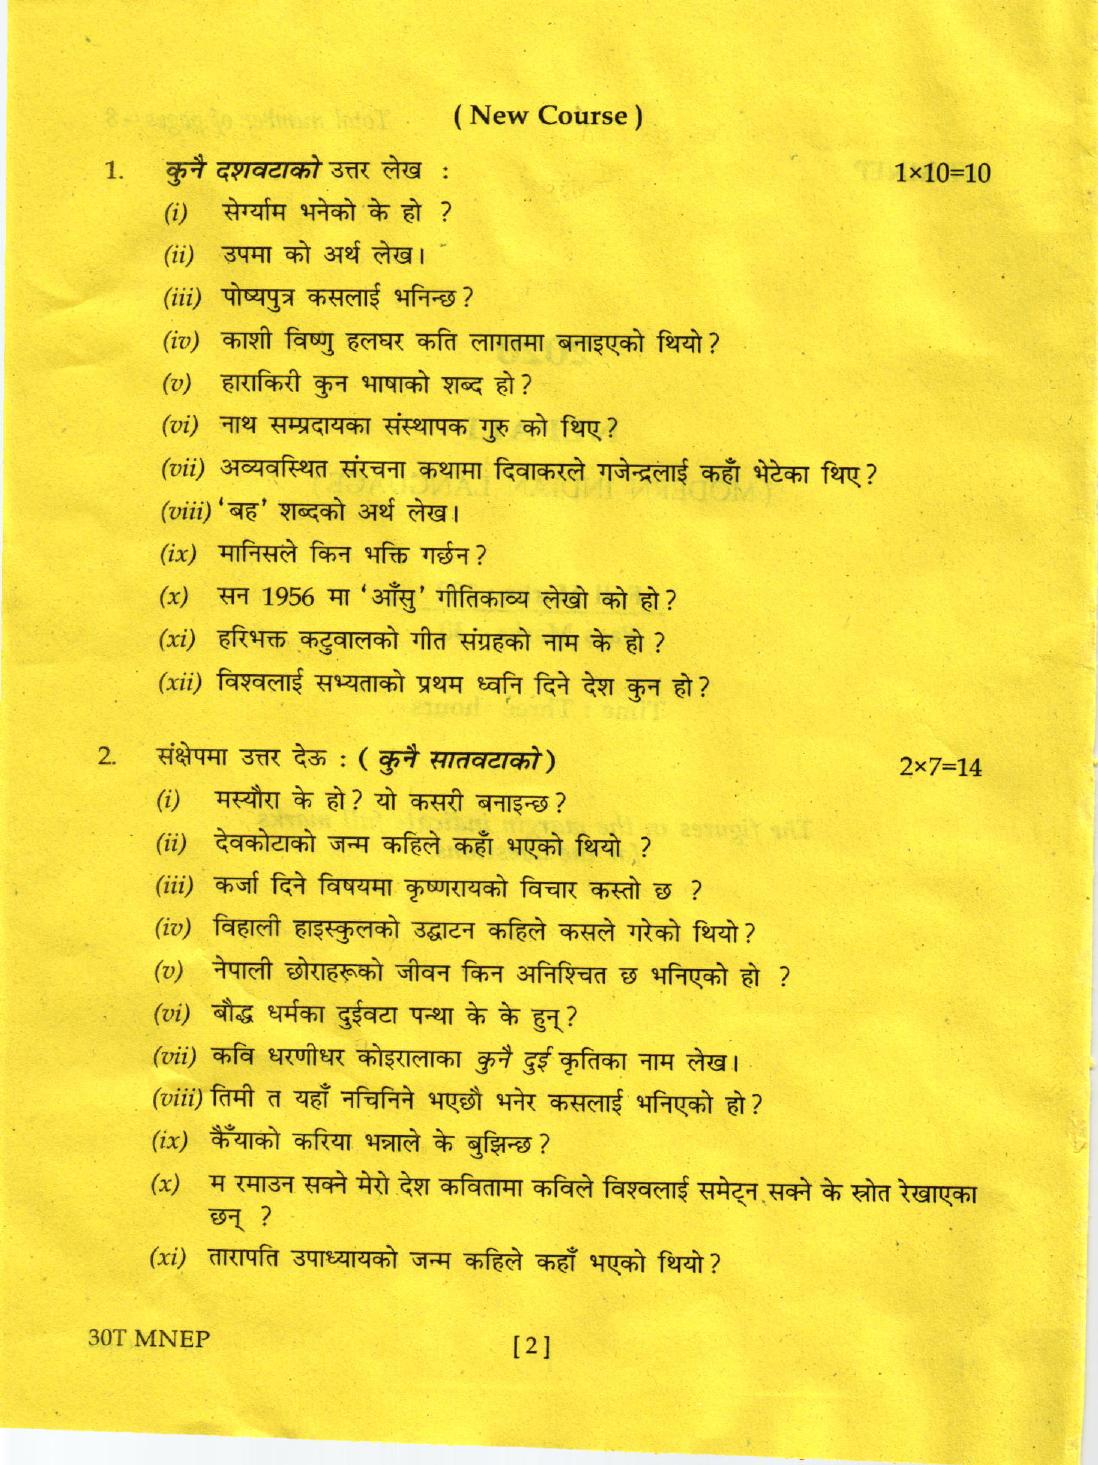 ( New Course )
1. कुनै दशवटाको उत्तर लेख : 1×10=10
(i) सेर्ग्याम भनेको के हो ?
(ii) उपमा को अर्थ लेख।
(iii) पोष्यपुत्र कसलाई भनिन्छ?
(iv) काशी विष्णु हलघर कति लागतमा बनाइएको थियो?
(v) हाराकिरी कुन भाषाको शब्द हो?
(vi) नाथ सम्प्रदायका संस्थापक गुरु को थिए?
(vii) अव्यवस्थित संरचना कथामा दिवाकरले गजेन्द्रलाई कहाँ भेटेका थिए?
(viii) 'बह' शब्दको अर्थ लेख।
(ix) मानिसले किन भक्ति गर्छन?
(x) सन 1956 मा 'आँसु' गीतिकाव्य लेखो को हो?
(xi) हरिभक्त कटुवालको गीत संग्रहको नाम के हो ?
(xii) विश्वलाई सभ्यताको प्रथम ध्वनि दिने देश कुन हो?
2. संक्षेपमा उत्तर देऊ : ( कुनै सातवटाको) 2×7=14
(i) मस्यौरा के हो? यो कसरी बनाइन्छ?
(ii) देवकोटाको जन्म कहिले कहाँ भएको थियो ?
(iii) कर्जा दिने विषयमा कृष्णरायको विचार कस्तो छ ?
(iv) विहाली हाइस्कुलको उद्घाटन कहिले कसले गरेको थियो?
(v) नेपाली छोराहरूको जीवन किन अनिश्चित छ भनिएको हो ?
(vi) बौद्ध धर्मका दुईवटा पन्था के के हुन्?
(vii) कवि धरणीधर कोइरालाका कुनै दुई कृतिका नाम लेख।
(viii) तिमी त यहाँ नचिनिने भएछौ भनेर कसलाई भनिएको हो?
(ix) कैँयाको करिया भन्नाले के बुझिन्छ?
(x) म रमाउन सक्ने मेरो देश कवितामा कविले विश्वलाई समेट्न सक्ने के स्रोत रेखाएका
छन् ?
(xi) तारापति उपाध्यायको जन्म कहिले कहाँ भएको थियो?
30T MNEP [ 2 ]